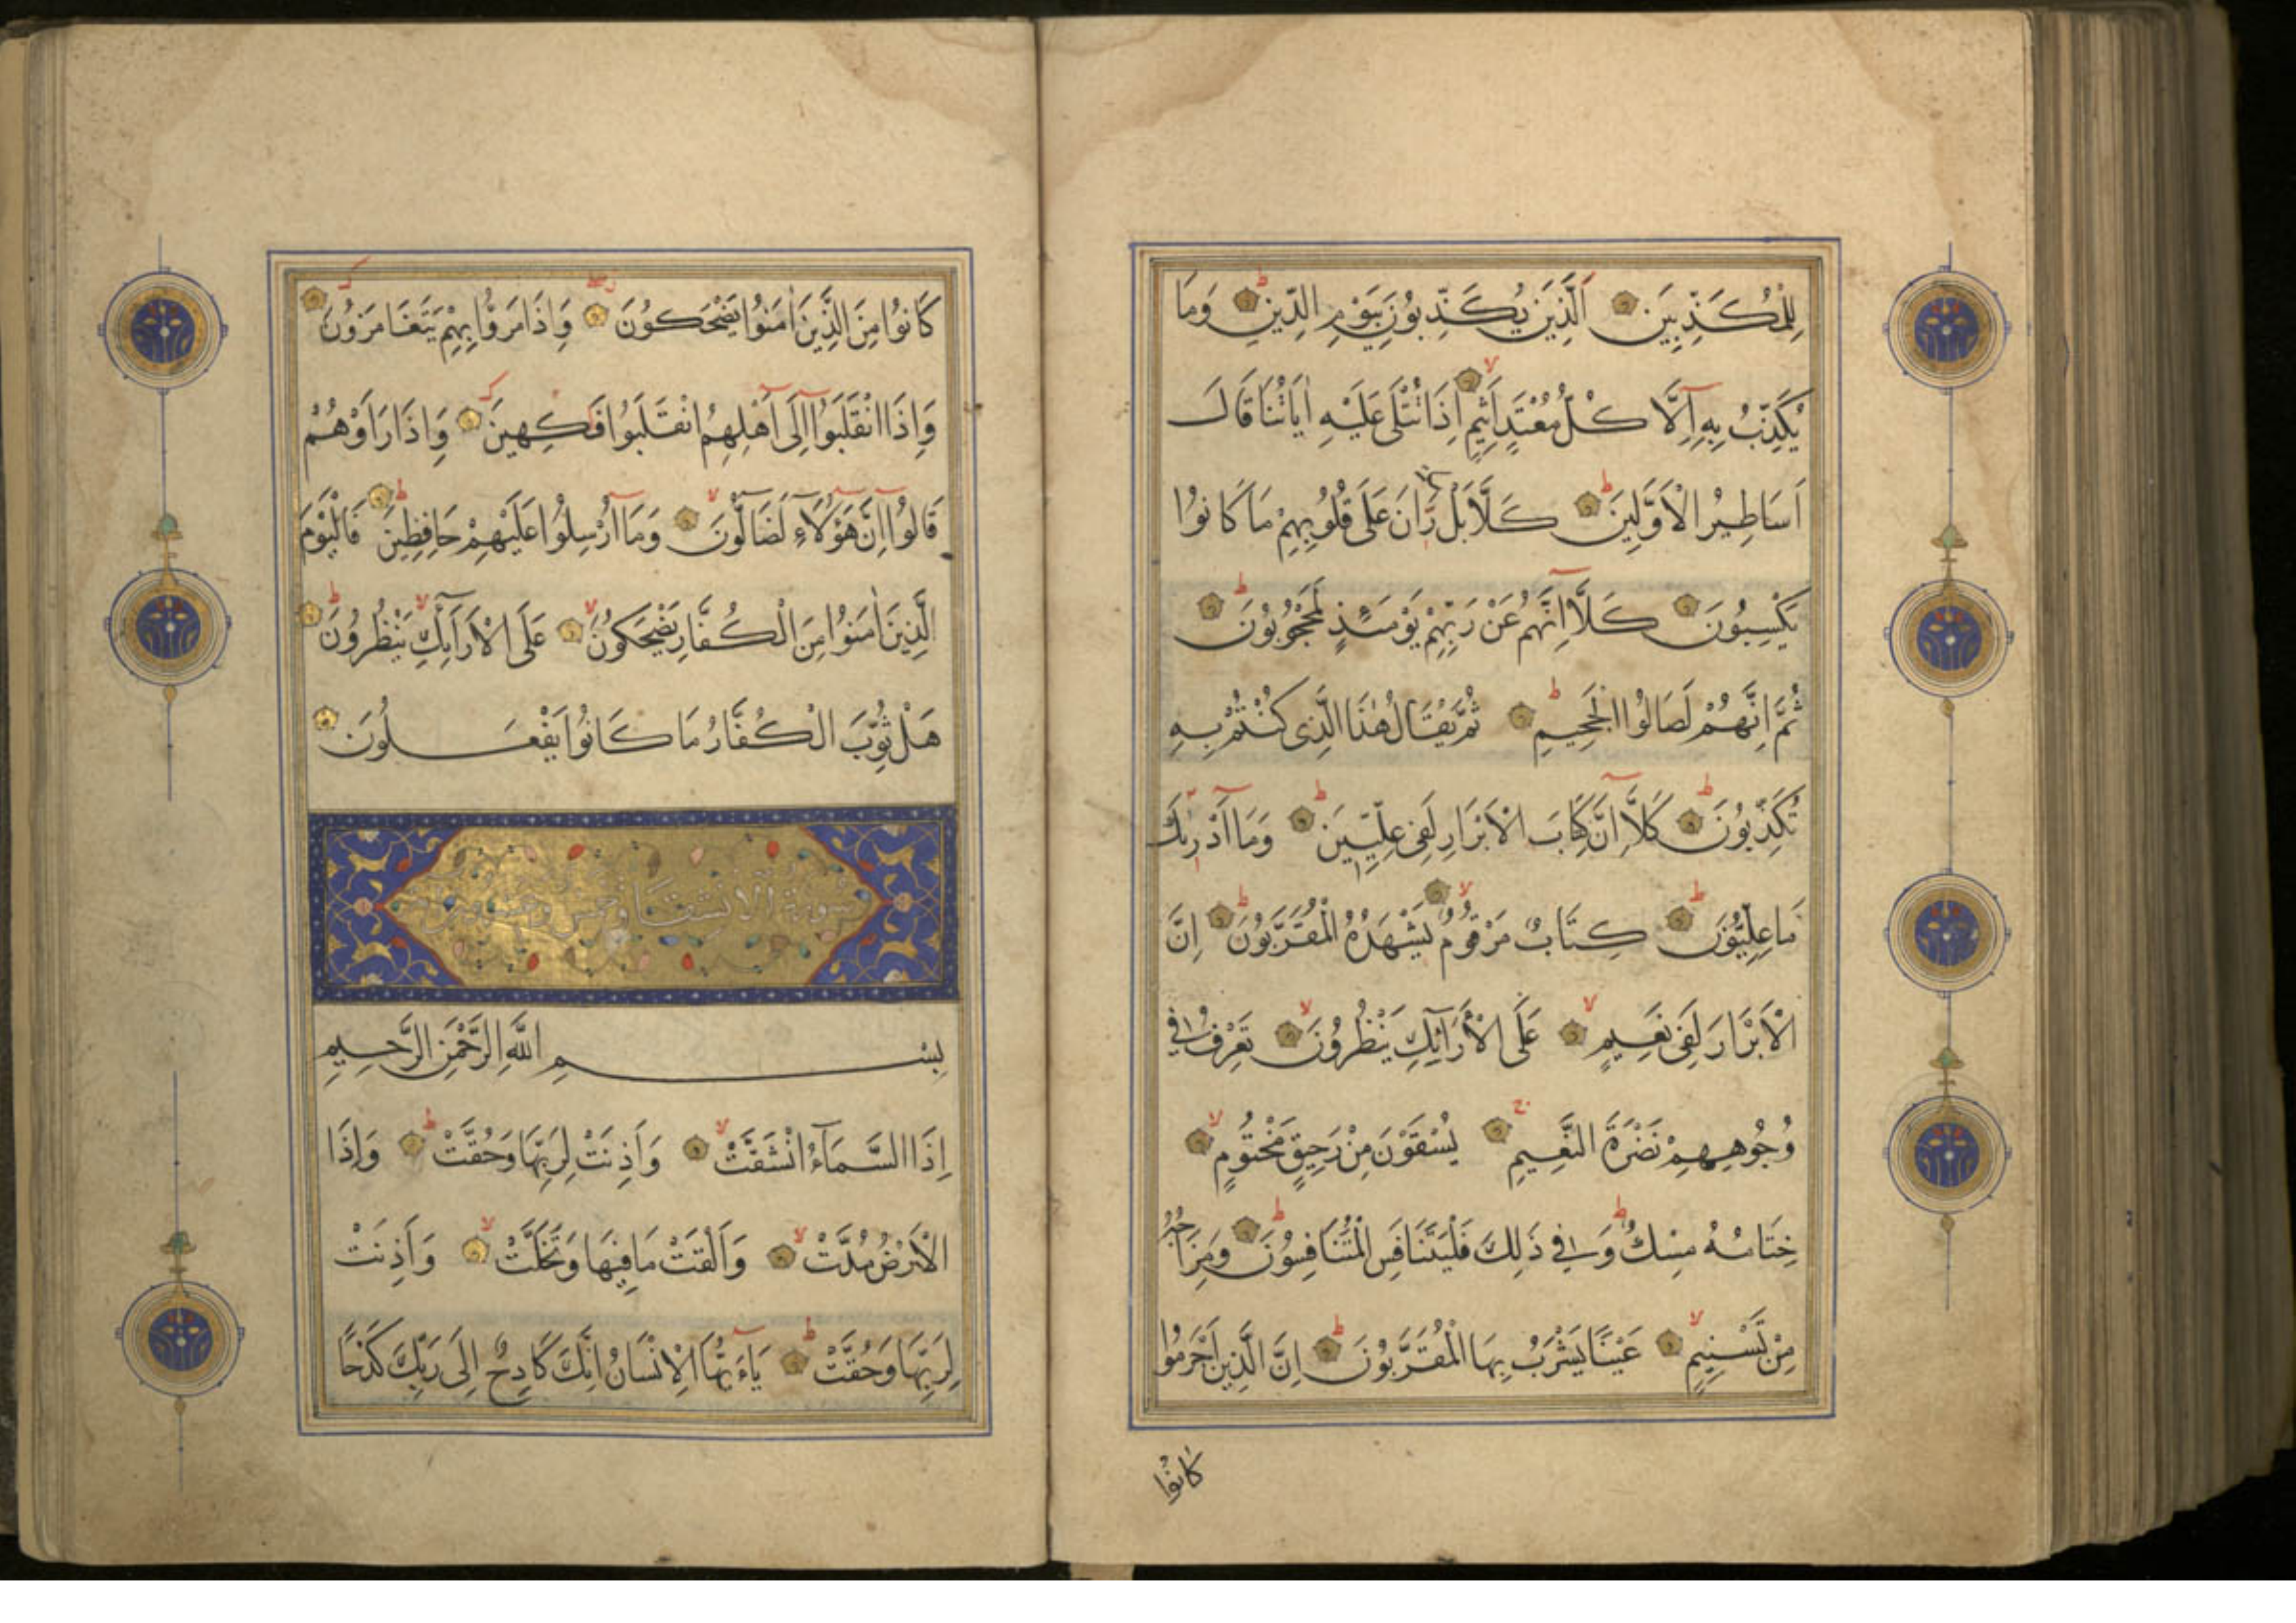 لِلْمُكَذِّبِينَ الَّذِينَ يُكَذِّبُونَ بِيَوْمِ الدِّينِ وَمَا
يُكَذِّبُ بِهِ إِلَّا كُلُّ مُعْتَدٍ أَثِيمٍ إِذَا تُتْلَى عَلَيْهِ اٰيَاتُنَا قَالَ
اَسَاطِيرُ الْاَوَّلِينَ كَلَّا بَلْ رَانَ عَلَى قُلُوبِهِمْ مَا كَانُوا
يَكْسِبُونَ كَلَّا اِنَّهُمْ عَنْ رَبِّهِمْ يَوْمَئِذٍ لَمَحْجُوبُونَ
ثُمَّ اِنَّهُمْ لَصَالُوا الْجَحِيمِ ثُمَّ يُقَالُ هٰذَا الَّذِى كُنْتُمْ بِهِ
تُكَذِّبُونَ كَلَّا اِنَّ كِتَابَ الْاَبْرَارِ لَفِى عِلِّيِّينَ وَمَا اَدْرٰيكَ
مَا عِلِّيُّونَ كِتَابٌ مَرْقُومٌ يَشْهَدُهُ الْمُقَرَّبُونَ اِنَّ
الْاَبْرَارَ لَفِى نَعِيمٍ عَلَى الْاَرَآئِكِ يَنْظُرُونَ تَعْرِفُ فِى
وُجُوهِهِمْ نَضْرَةَ النَّعِيمِ يُسْقَوْنَ مِنْ رَحِيقٍ مَخْتُومٍ
خِتَامُهُ مِسْكٌ وَفِى ذَلِكَ فَلْيَتَنَافَسِ الْمُتَنَافِسُونَ وَمِزَاجُهُ
مِنْ تَسْنِيمٍ عَيْنًا يَشْرَبُ بِهَا الْمُقَرَّبُونَ اِنَّ الَّذِينَ اَجْرَمُوا
كَانُوا
كَانُوا مِنَ الَّذِينَ اٰمَنُوا يَضْحَكُونَ وَاِذَا مَرُّوا بِهِمْ يَتَغَامَزُونَ
وَاِذَا انْقَلَبُوا اِلَى اَهْلِهِمُ انْقَلَبُوا فَكِهِينَ وَاِذَا رَاَوْهُمْ
قَالُوا اِنَّ هَؤُلَاءِ لَضَالُّونَ وَمَا اُرْسِلُوا عَلَيْهِمْ حَافِظِينَ فَالْيَوْمَ
الَّذِينَ اٰمَنُوا مِنَ الْكُفَّارِ يَضْحَكُونَ عَلَى الْاَرَآئِكِ يَنْظُرُونَ
هَلْ ثُوِّبَ الْكُفَّارُ مَا كَانُوا يَفْعَلُونَ
سورة الانشقاق خمس وعشرون
بِسْمِ اللَّهِ الرَّحْمَنِ الرَّحِيمِ
اِذَا السَّمَآءُ انْشَقَّتْ وَاَذِنَتْ لِرَبِّهَا وَحُقَّتْ وَاِذَا
الْاَرْضُ مُدَّتْ وَاَلْقَتْ مَا فِيهَا وَتَخَلَّتْ وَاَذِنَتْ
لِرَبِّهَا وَحُقَّتْ يَاءَيُّهَا الْاِنْسَانُ اِنَّكَ كَادِحٌ اِلَى رَبِّكَ كَدْحًا